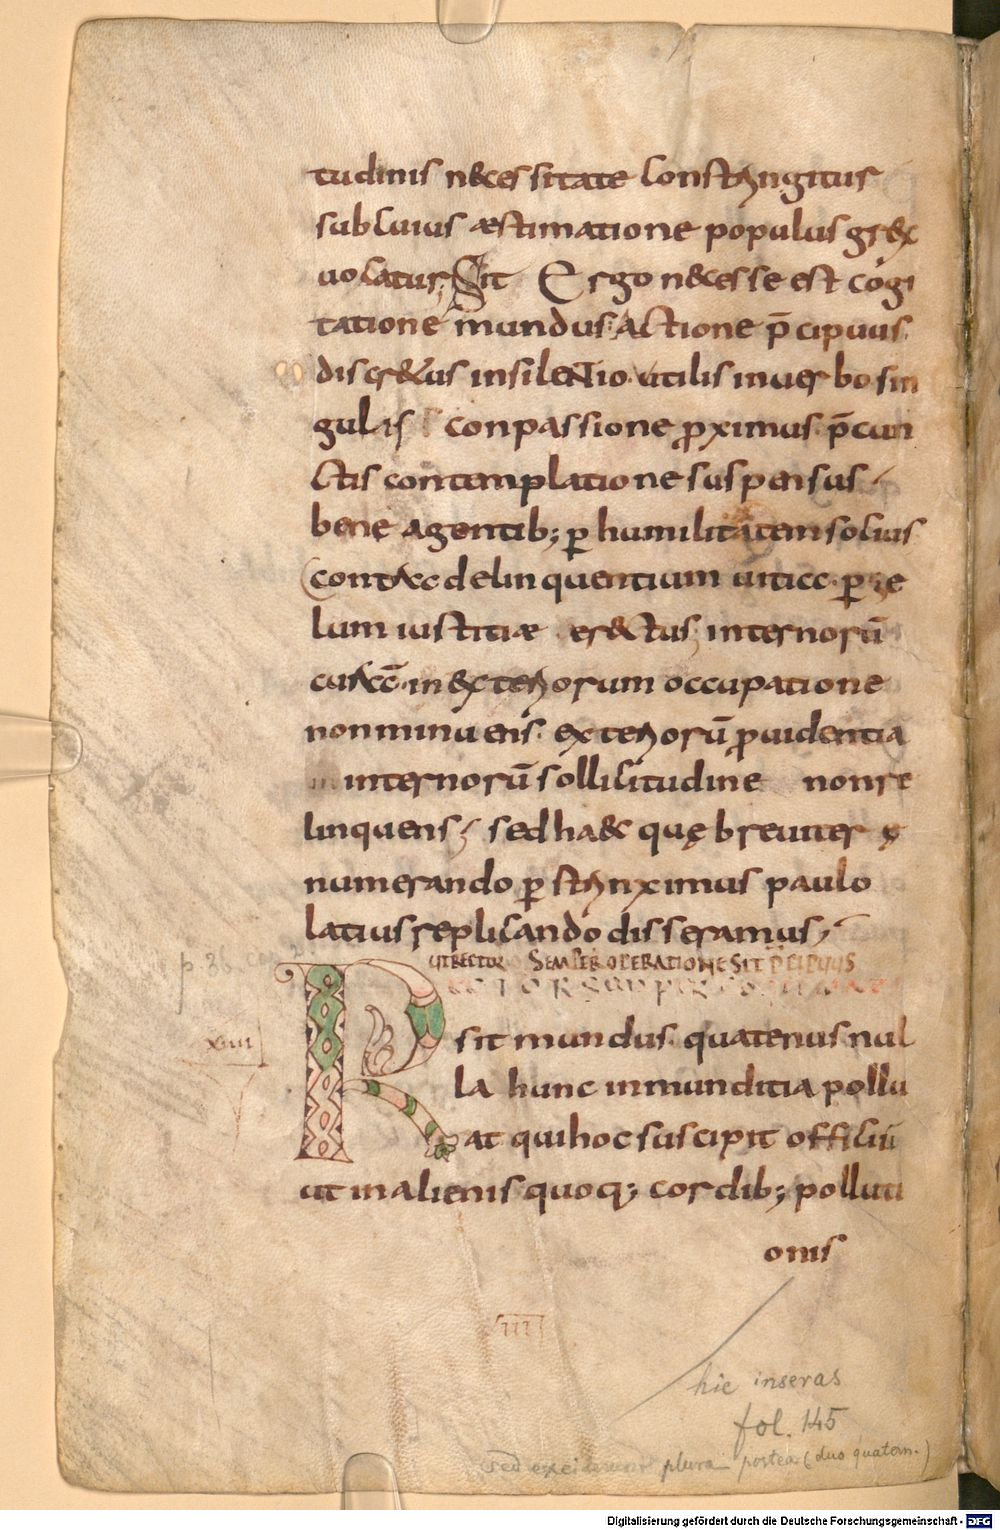 tudinis n&cessitate constringitur
sub cuius æstimatione populus gr&x
uocatur; Sit Ergo n&cesse est cogi
tatione mundus. Actione p̄cipuus.
discr&us in silentio. utilis in uerbo sin
gulis conpassione ꝓximus. p̄ cun
ctis contemplatione suspensus.
bene agentib; ꝑ humilitatem socius
contra delinquentium uitia. ꝑ ze
lum iustitiæ er&ctus; internorū
curā in exteriorum occupatione
non minuens. exteriorū ꝓuidentia
in internorū sollicitudine non re
linquens; sed haec quę breuiter ę
numerando ꝑstrinximus paulo
latius replicando disseramus;
UT RECTOR SEMPER OPERATIONE SIT P̄CIPUUS
XIIII
R sit mundus. quatenus nul
la hunc inmunditia pollu
at qui hoc suscipit officiū
ut in alienis quoq; cordib; polluti
onis
III
hic inseras
fol. 145
sed exciderunt plura postea (duo quatern.)
Digitalisierung gefördert durch die Deutsche Forschungsgemeinschaft - DFG